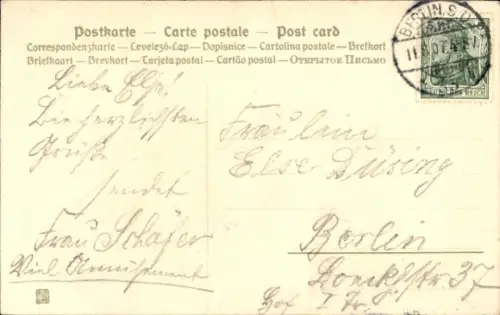 Postkarte – Carte postale – Post card
Correspondenzkarte – Levelező-Lap – Dopisnice – Cartolina postale – Brefkort
Briefkaart – Brevkort – Tarjeta postal – Cartão postal – Открытое Письмо
BERLIN S.
Liebe Else!
Die herzlichsten
Grüße
sendet
Frau Schäfer
Viel Amusement
Fräulein
Else Düsing
Berlin
37
Hof I Tr.